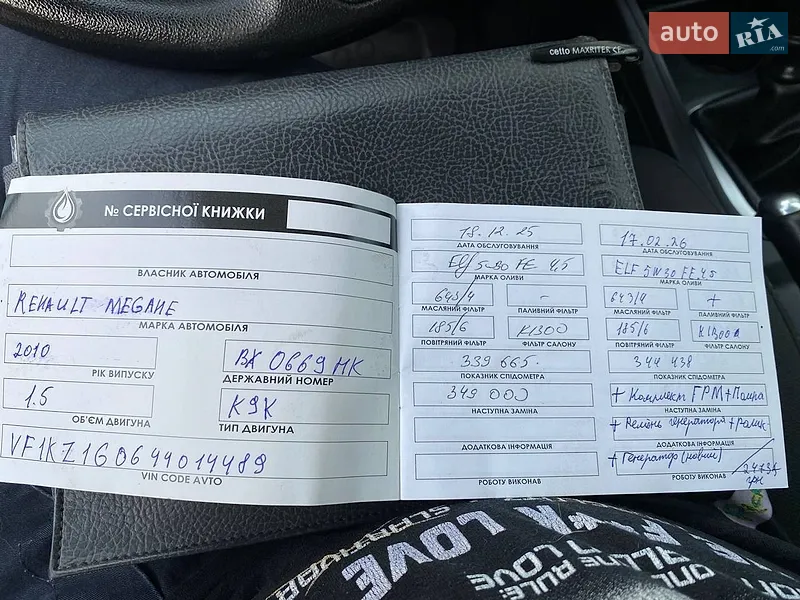 auto RIA.com
cello MAXRITER
№ СЕРВІСНОЇ КНИЖКИ
ВЛАСНИК АВТОМОБІЛЯ
RENAULT MEGANE
МАРКА АВТОМОБІЛЯ
2010
РІК ВИПУСКУ
ВХ 0669 НК
ДЕРЖАВНИЙ НОМЕР
1.5
ОБ'ЄМ ДВИГУНА
K9K
ТИП ДВИГУНА
VF1KZ1G0644014489
VIN CODE АВТО
18.12.25
ДАТА ОБСЛУГОВУВАННЯ
Elf 5-30 FE 4,5
МАРКА ОЛИВИ
643/4
МАСЛЯНИЙ ФІЛЬТР
-
ПАЛИВНИЙ ФІЛЬТР
185/6
ПОВІТРЯНИЙ ФІЛЬТР
K1300
ФІЛЬТР САЛОНУ
339 665.
ПОКАЗНИК СПІДОМЕТРА
349 000
НАСТУПНА ЗАМІНА
ДОДАТКОВА ІНФОРМАЦІЯ
РОБОТУ ВИКОНАВ
17.02.26
ДАТА ОБСЛУГОВУВАННЯ
ELF 5W30 FE 4,5
МАРКА ОЛИВИ
643/4
МАСЛЯНИЙ ФІЛЬТР
+
ПАЛИВНИЙ ФІЛЬТР
185/6
ПОВІТРЯНИЙ ФІЛЬТР
K1300A
ФІЛЬТР САЛОНУ
344 438
ПОКАЗНИК СПІДОМЕТРА
+ Комплект ГРМ + Помпа
НАСТУПНА ЗАМІНА
+ Ремень генератора + ролик
ДОДАТКОВА ІНФОРМАЦІЯ
+ Генератор (новий)
РОБОТУ ВИКОНАВ
грн
LOVE
LOVE
RULE: